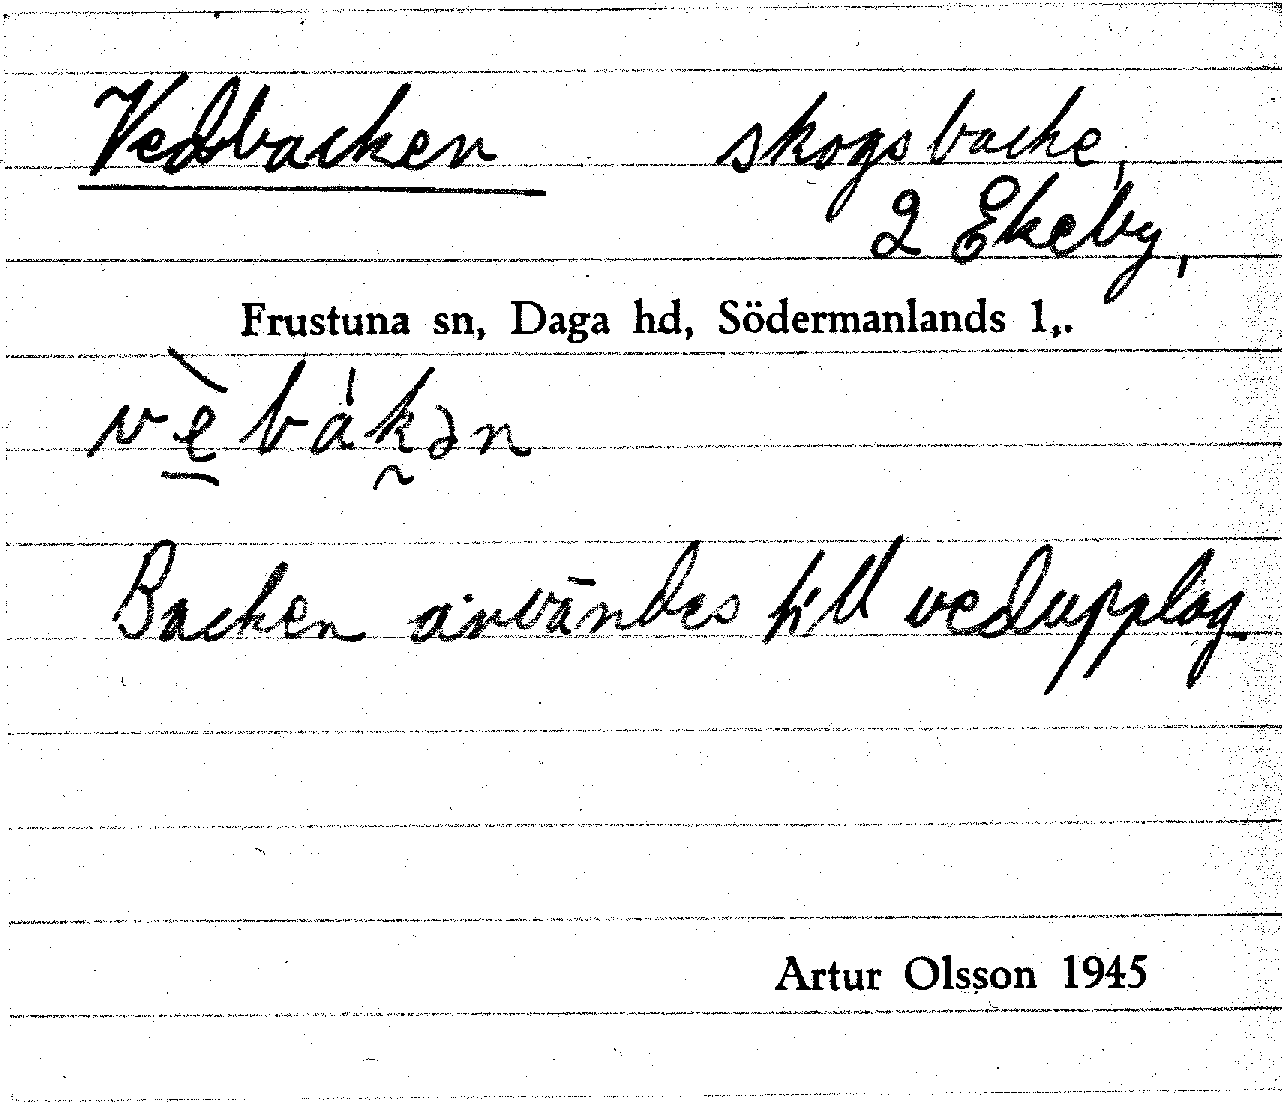 Vedbacken skogsbacke,
2 Ekeby,
Frustuna sn, Daga hd, Södermanlands l,.
vè̱bák̰ən
Backen användes till vedupplag.
Artur Olsson 1945